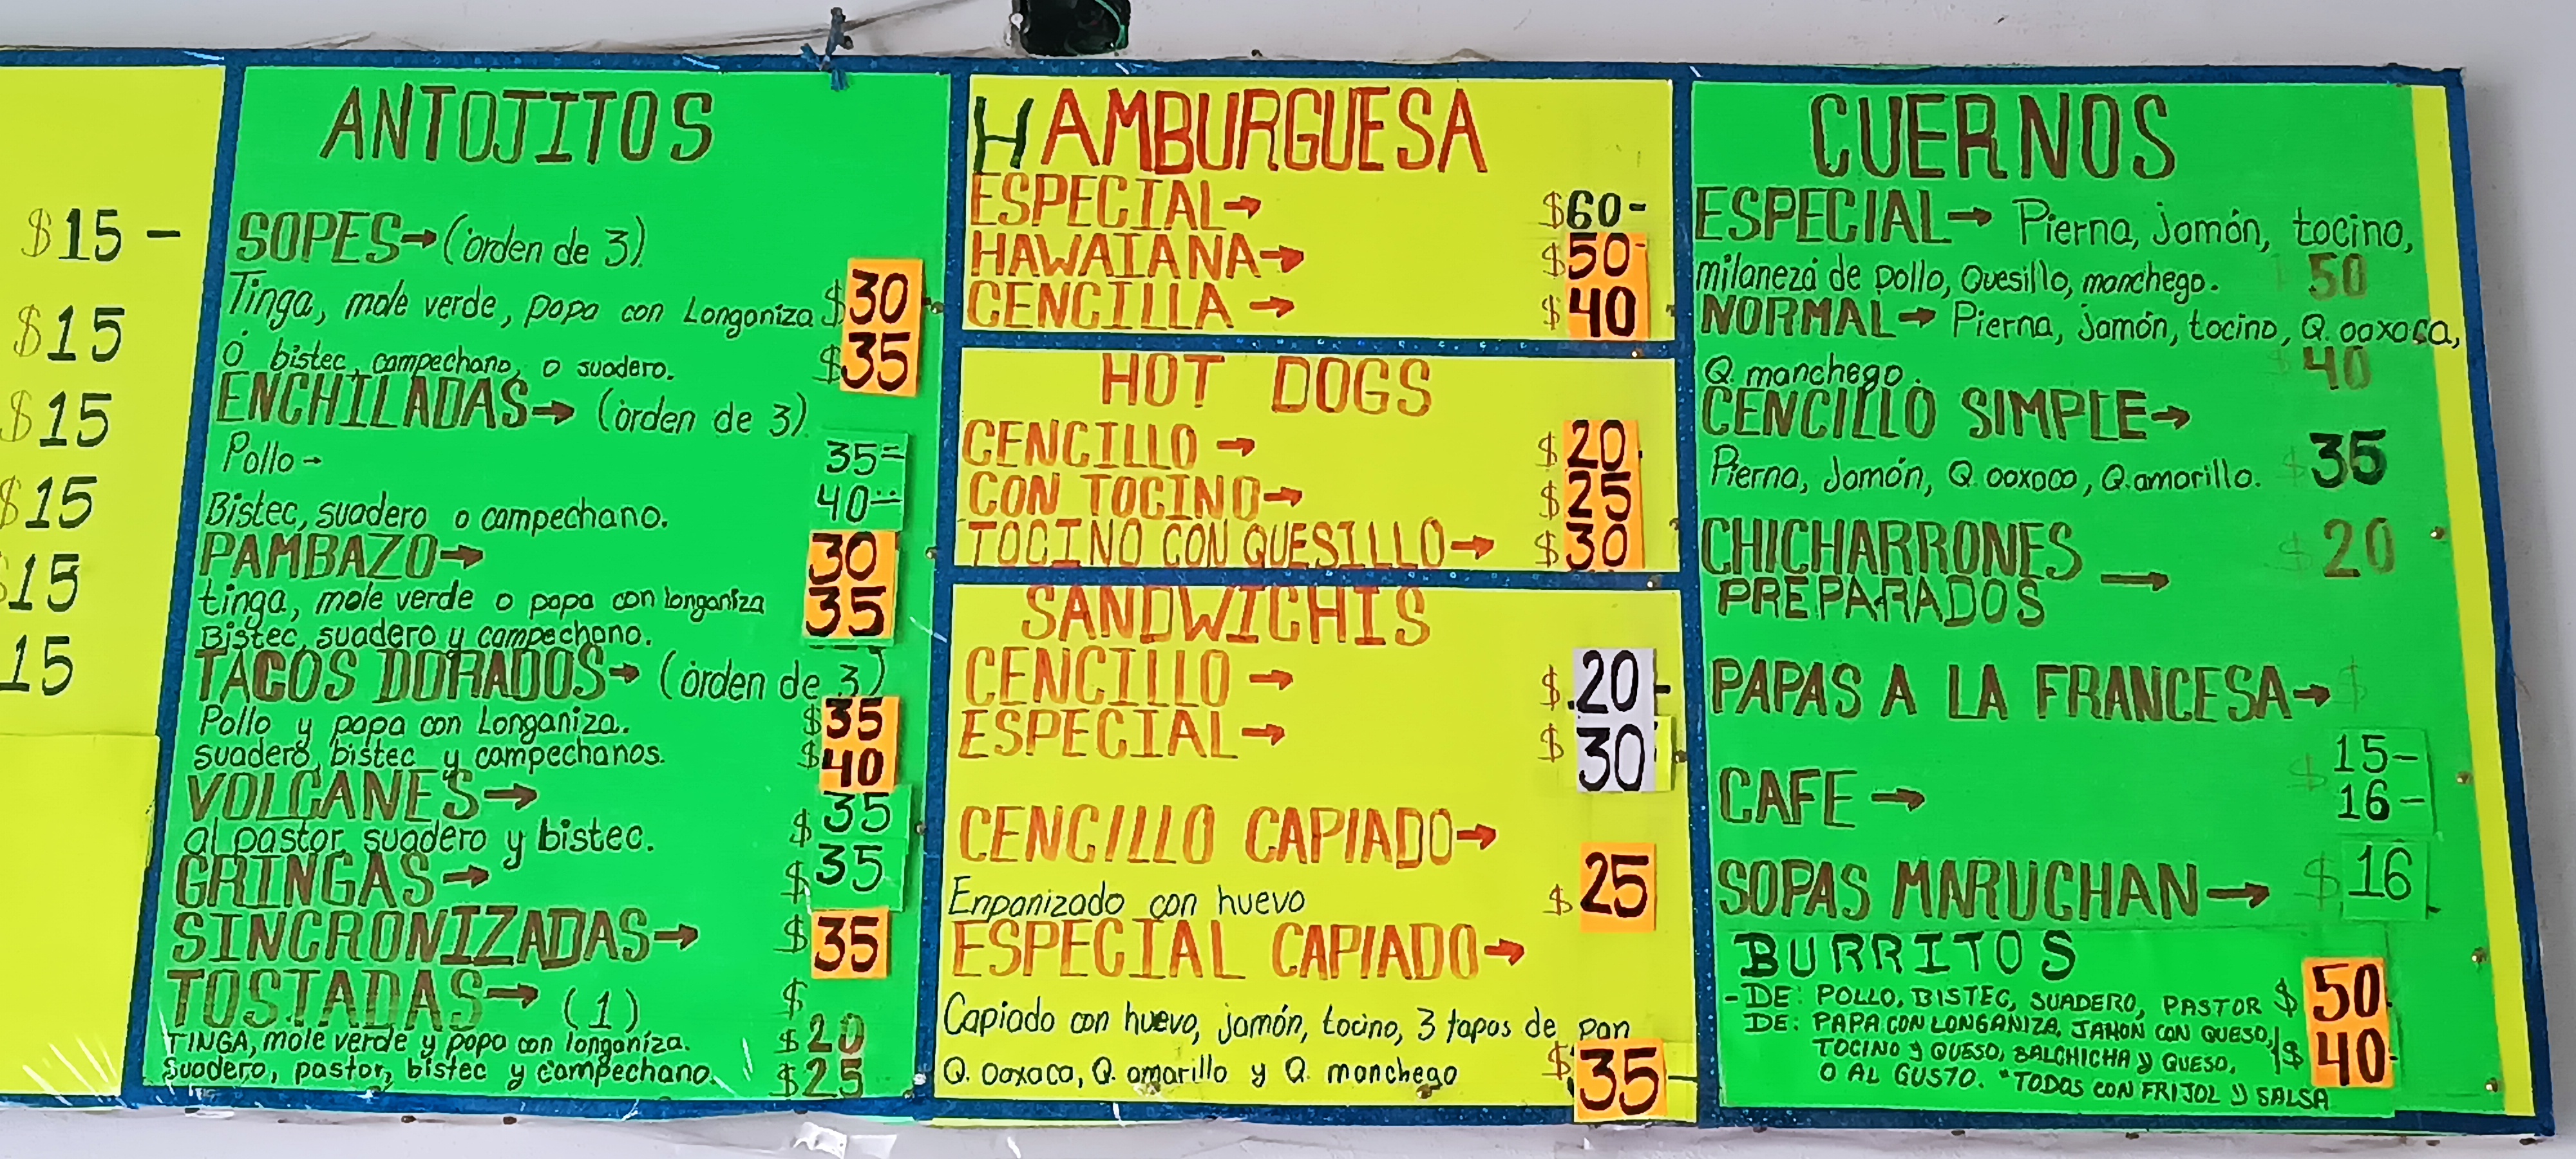 $15-
$15
$15
$15
$15
15
ANTOJITOS
SOPES→(orden de 3)
Tinga, mole verde, papa con Longaniza $30
ó bistec, campechano, o suadero. $35
ENCHILADAS→ (orden de 3)
Pollo- 35=
Bistec, suadero o campechano. 40=
PAMBAZO→ 30
tinga, mole verde o papa con longaniza 35
Bistec, suadero y campechano.
TACOS DORADOS→ (orden de 3)
Pollo y papa con Longaniza. $35
suadero, bistec y campechanos. $40
VOLCANES→ $35
al pastor, suadero y bistec.
GRINGAS→ $35
SINCRONIZADAS→ $35
TOSTADAS→ (1) $
TINGA, mole verde y papa con longaniza. $20
Suadero, pastor, bistec y campechano. $25
HAMBURGUESA
ESPECIAL→ $60-
HAWAIANA→ $50-
CENCILLA→ $40
HOT DOGS
CENCILLO→ $20
CON TOCINO→ $25
TOCINO CON QUESILLO→ $30
SANDWICHIS
CENCILLO→ $20-
ESPECIAL→ $30
CENCILLO CAPIADO→
Enpanizado con huevo $25
ESPECIAL CAPIADO→
Capiado con huevo, jamón, tocino, 3 tapas de pan
Q. Oaxaca, Q. amarillo y Q. manchego $35-
CUERNOS
ESPECIAL→ Pierna, jamón, tocino,
milaneza de pollo, Quesillo, manchego. 50
NORMAL→ Pierna, jamón, tocino, Q. oaxaca,
Q. manchego. 40
CENCILLO SIMPLE→
Pierna, Jamón, Q. oaxaca, Q. amarillo. $35
CHICHARRONES → $20
PREPARADOS
PAPAS A LA FRANCESA→ $
15-
CAFE→ $ 16-
SOPAS MARUCHAN→ $16
BURRITOS
-DE: POLLO, BISTEC, SUADERO, PASTOR $50
DE: PAPA CON LONGANIZA, JAMON CON QUESO,
TOCINO Y QUESO, SALCHICHA Y QUESO, $40-
O AL GUSTO. *TODOS CON FRIJOL Y SALSA